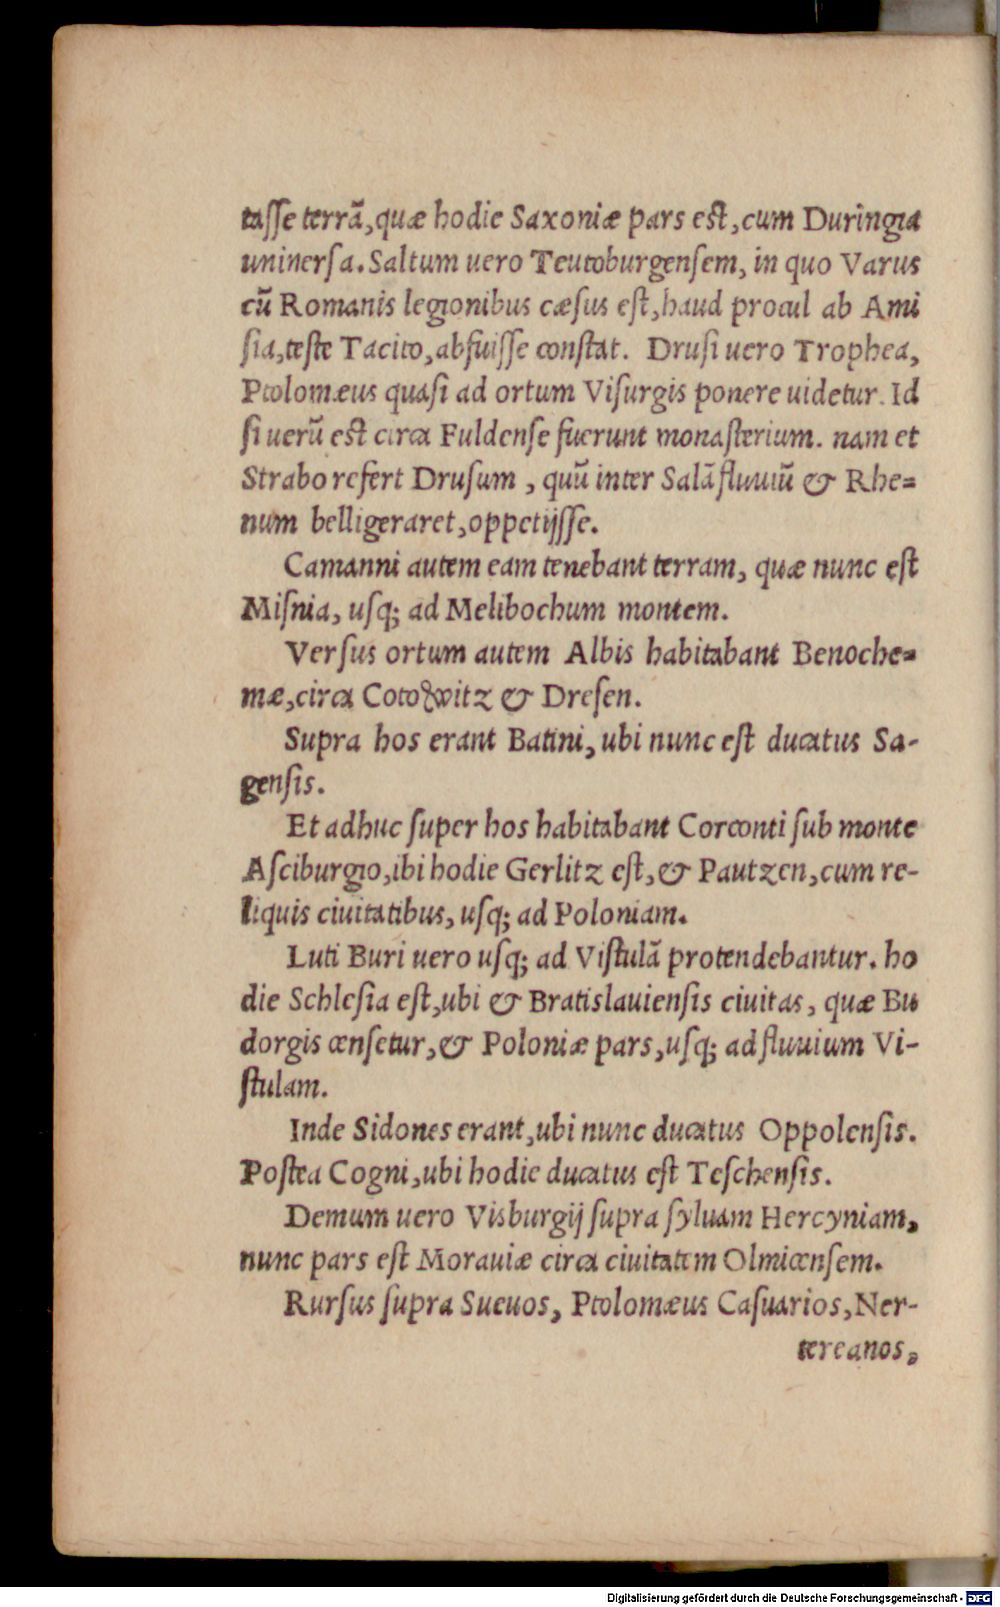 tasse terrã, quæ hodie Saxoniæ pars est, cum Duringia
uniuersa. Saltum uero Teutoburgensem, in quo Varus
cũ Romanis legionibus cæsus est, haud procul ab Ami
sia, teste Tacito, abfuisse constat. Drusi uero Trophea,
Ptolomæus quasi ad ortum Visurgis ponere uidetur. Id
si uerũ est circa Fuldense fuerunt monasterium. nam et
Strabo refert Drusum, quũ inter Salã fluuiũ & Rhe=
num belligeraret, oppetijsse.
Camanni autem eam tenebant terram, quæ nunc est
Misnia, usq; ad Melibochum montem.
Versus ortum autem Albis habitabant Benoche=
mæ, circa & Dresen.
Supra hos erant Batini, ubi nunc est ducatus Sa-
gensis.
Et adhuc super hos habitabant Corconti sub monte
Asciburgio, ibi hodie Gerlitz est, & Pautzen, cum re-
liquis ciuitatibus, usq; ad Poloniam.
Luti Buri uero usq; ad Vistulã protendebantur. ho
die Schlesia est, ubi & Bratislauiensis ciuitas, quæ Bu
dorgis censetur, & Poloniæ pars, usq; ad fluuium Vi-
stulam.
Inde Sidones erant, ubi nunc ducatus Oppolensis.
Postea Cogni, ubi hodie ducatus est Teschensis.
Demum uero Visburgij supra syluam Hercyniam,
nunc pars est Morauiæ circa ciuitatem Olmicensem.
Rursus supra Sueuos, Ptolomæus Casuarios, Ner-
tereanos,
Digitalisierung gefördert durch die Deutsche Forschungsgemeinschaft - DFG